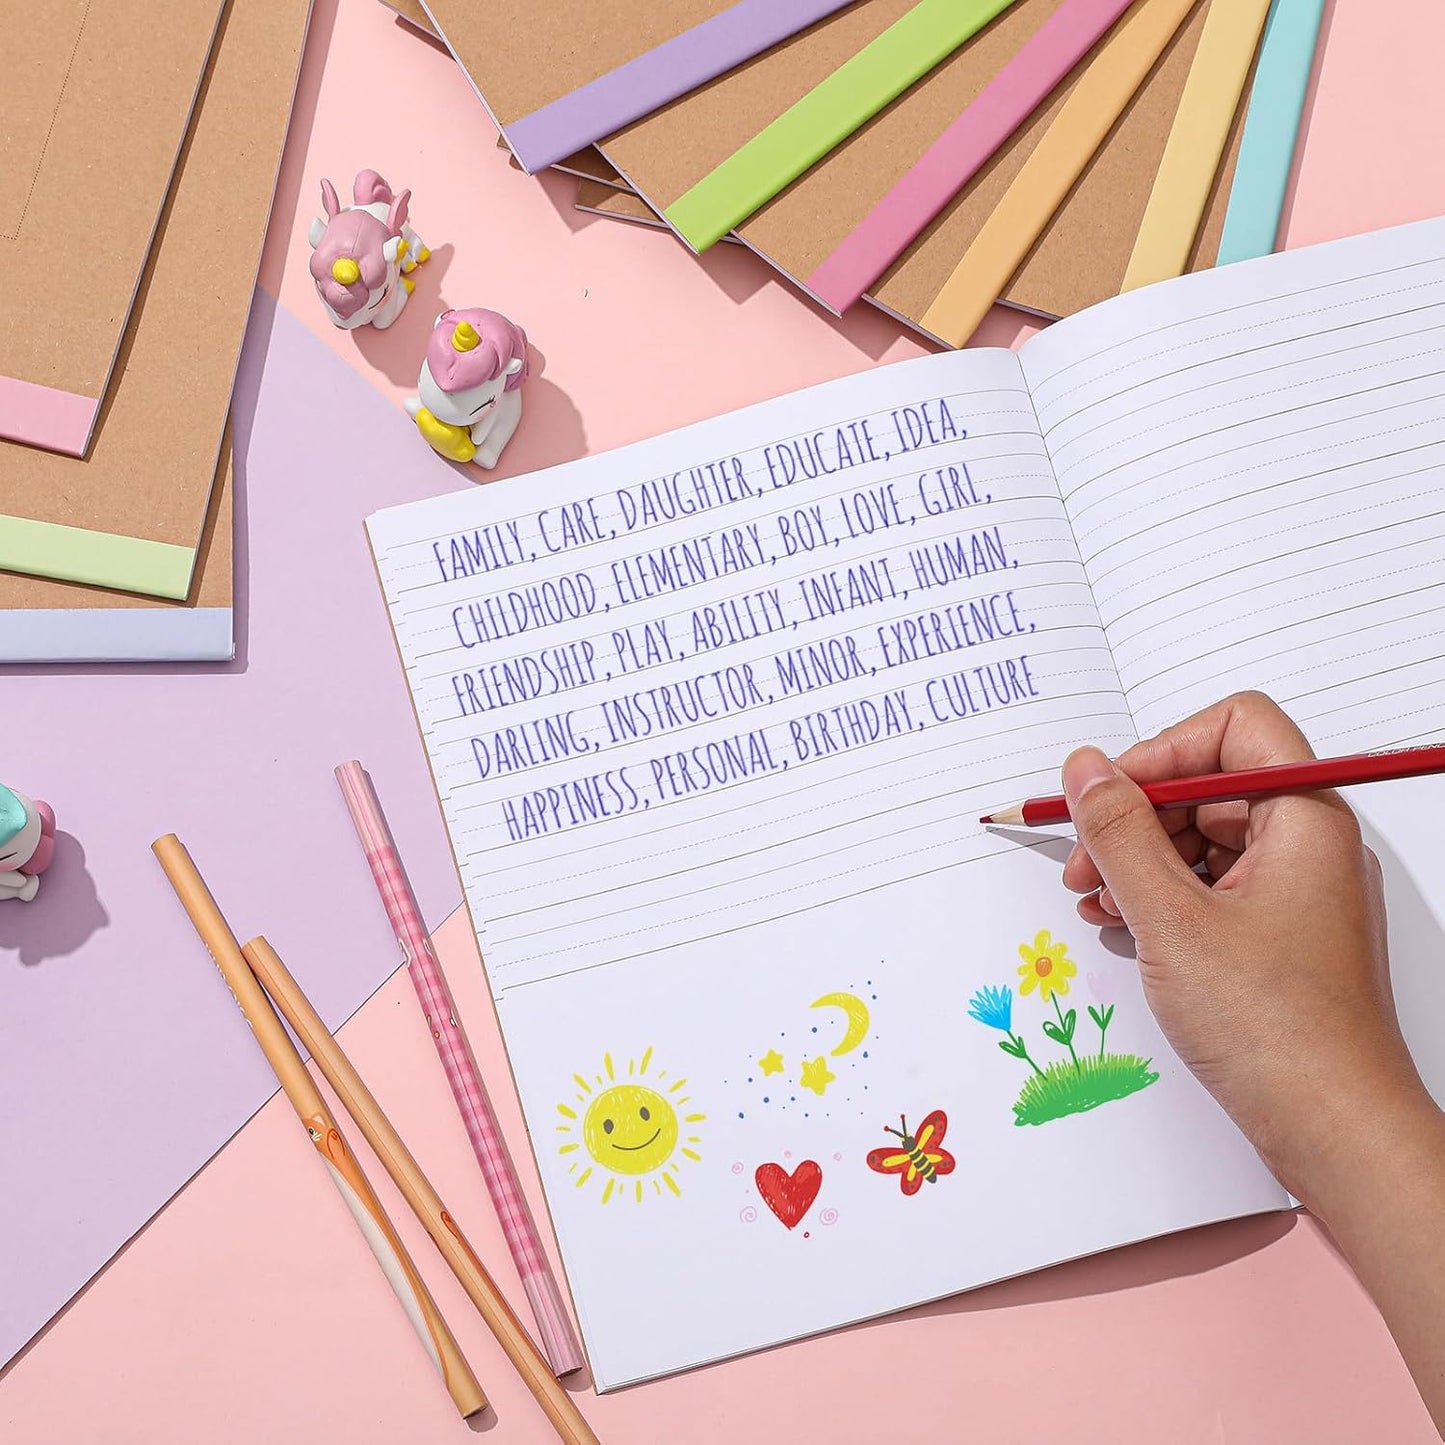 FAMILY, CARE, DAUGHTER, EDUCATE, IDEA,
CHILDHOOD, ELEMENTARY, BOY, LOVE, GIRL,
FRIENDSHIP, PLAY, ABILITY, INFANT, HUMAN,
DARLING, INSTRUCTOR, MINOR, EXPERIENCE,
HAPPINESS, PERSONAL, BIRTHDAY, CULTURE